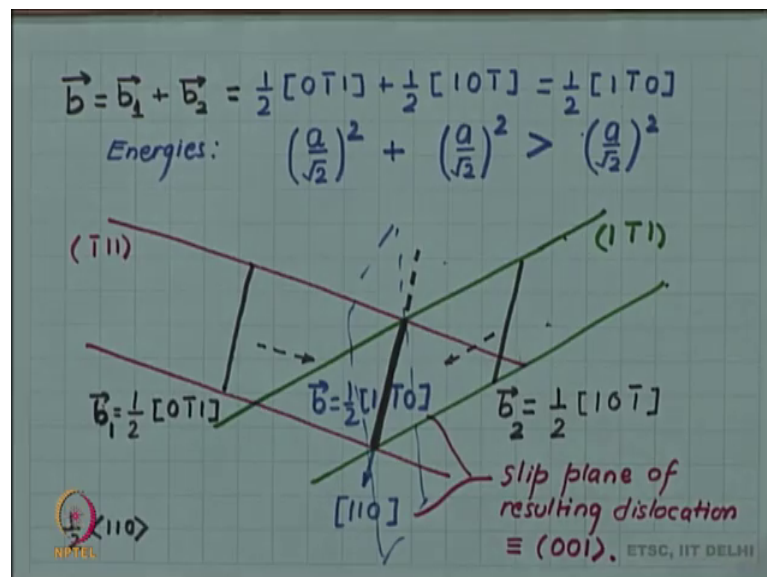 b⃗ = b⃗₁ + b⃗₂ = ½ [0 1̄ 1] + ½ [1 0 1̄] = ½ [1 1̄ 0]
Energies: (a/√2)² + (a/√2)² > (a/√2)²
(1̄ 1 1)
(1 1̄ 1)
b⃗₁ = ½ [0 1̄ 1]
b⃗ = ½ [1 1̄ 0]
b⃗₂ = ½ [1 0 1̄]
[110]
slip plane of
resulting dislocation
≡ (001).
½ <110>
NPTEL
ETSC, IIT DELHI